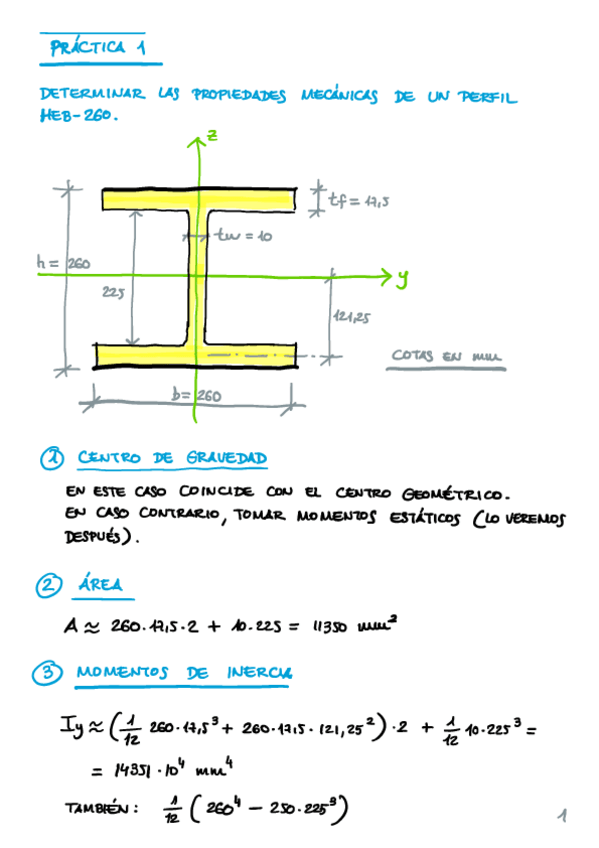 PRÁCTICA 1
DETERMINAR LAS PROPIEDADES MECÁNICAS DE UN PERFIL
HEB-260.
z
tf = 17,5
tw = 10
h = 260
y
225
121,25
COTAS EN mm
b = 260
1 CENTRO DE GRAVEDAD
EN ESTE CASO COINCIDE CON EL CENTRO GEOMÉTRICO.
EN CASO CONTRARIO, TOMAR MOMENTOS ESTÁTICOS (LO VEREMOS
DESPUÉS).
2 ÁREA
A ≈ 260·17,5·2 + 10·225 = 11350 mm²
3 MOMENTOS DE INERCIA
Iy ≈ (1/12 260·17,5³ + 260·17,5·121,25²)·2 + 1/12 10·225³ =
= 14351·10⁴ mm⁴
TAMBIÉN: 1/12 (260⁴ − 250·225³)
1